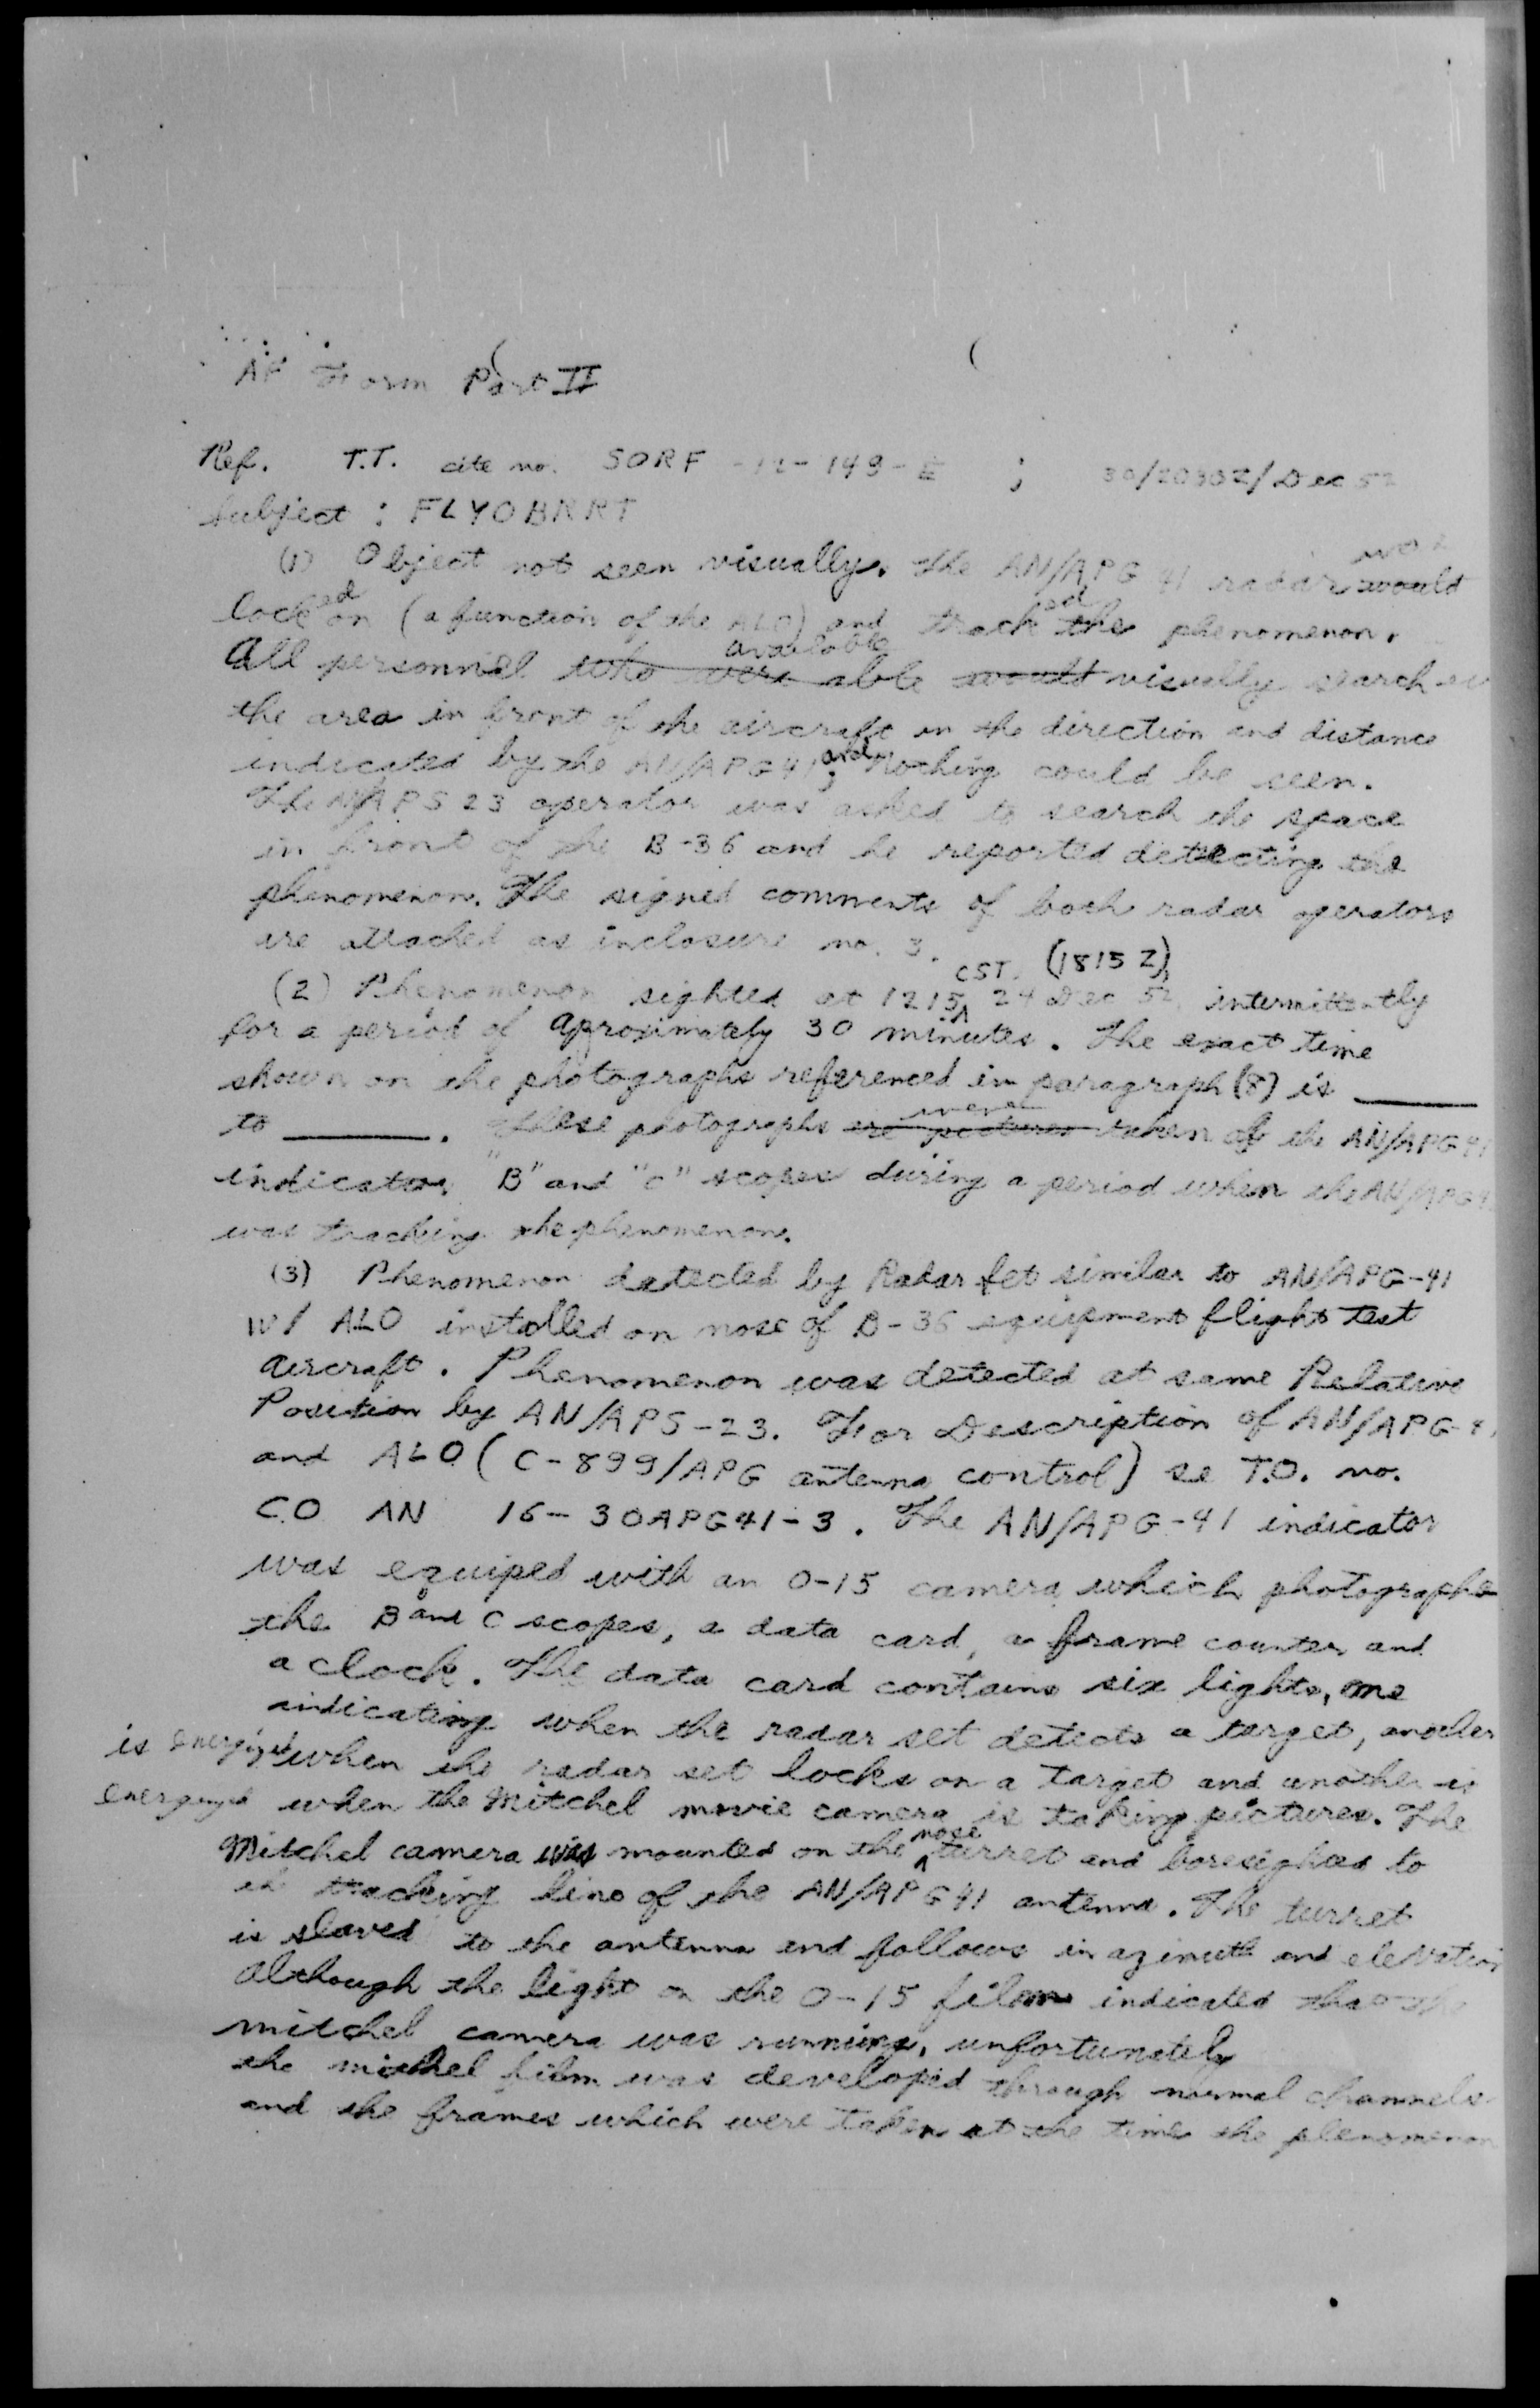 AF Form Part II
Ref. T.T. cite no. SORF -12-149-E ; 30/2030Z/Dec 52
Subject : FLYOBRRT
(1) Object not seen visually. The AN/APG 41 radar was would
locked on (a function of the ALO) and tracked the phenomenon.
All personnel who were available able would visually search
the area in front of the aircraft in the direction and distance
indicated by the AN/APG41; and nothing could be seen.
The AN/APS 23 operator was asked to search the space
in front of the B-36 and he reported detecting the
phenomenon. The signed comments of both radar operators
are attached as inclosure no. 3.
(2) Phenomenon sighted at 1215 CST. (1815 Z) 24 Dec 52, intermittently
for a period of aproximately 30 minutes. The exact time
shown on the photographs referenced in paragraph (8) is ______
to ______. These photographs are pictures were taken of the AN/APG 41
indicator, "B" and "C" scopes during a period when the AN/APG 41
was tracking the phenomenon.
(3) Phenomenon detected by Radar Set similar to AN/APG-41
W/ ALO installed on nose of B-36 equipment flight test
aircraft. Phenomenon was detected at same Relative
Position by AN/APS-23. For Description of AN/APG-41
and ALO (C-899/APG antenna control) se T.O. no.
CO AN 16-30APG41-3. The AN/APG-41 indicator
was equiped with an O-15 camera which photographs
the B and C scopes, a data card, a frame counter and
a clock. The data card contains six lights, one
indicating when the radar set detects a target, another
is energized when the radar set locks on a target and another is
energized when the Mitchel movie camera is taking pictures. The
Mitchel camera was mounted on the nose turret and boresighted to
the tracking line of the AN/APG41 antenna. The turret
is slaved to the antenna and follows in azimuth and elevation
Although the light on the O-15 film indicated that the
mitchel camera was running, unfortunately
the mitchel film was developed through normal channels
and the frames which were taken at the time the phenomenon